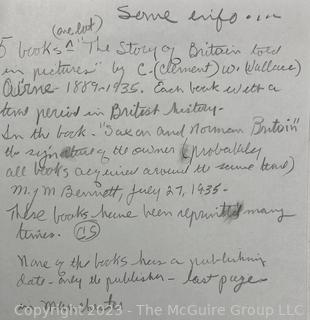 Some info....
(one lot)
5 books ^ "The Story of Britain told
in pictures" by C. (Clement) W. Wallace)
Quirne - 1889-1935. Each book with a
time period in British history.
In the book - "Saxon and Norman Britain"
the signature of the owner (probably
all books acquired around the same time)
M. J M Bennett, July 27, 1935.
These books have been reprinted many
times. CS
None of the books has a publishing
date - only the publisher - last page
in Manchester
Copyright 2023 - The McGuire Group LLC